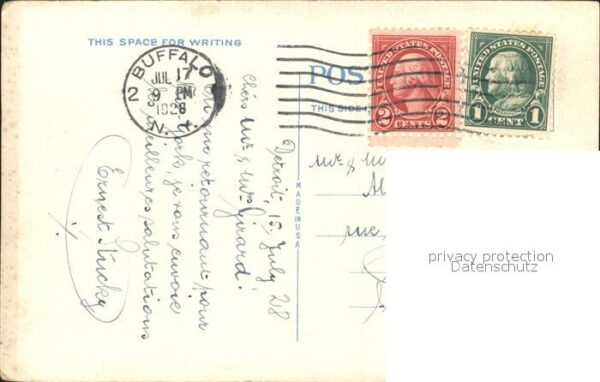 THIS SPACE FOR WRITING
BUFFALO
JUL 17
9 PM
1928
2
N.Y.
POST
THIS SIDE
UNITED STATES POSTAGE
2 CENTS 2
UNITED STATES POSTAGE
1 CENT 1
MADE IN USA
Detroit, 15 July 28
Chers Mr & Mrs Girard!
En me retournant pour
York, je vous envoie
meilleures salutations
Ernest Stucky
Mr & M
rue
privacy protection
Datenschutz